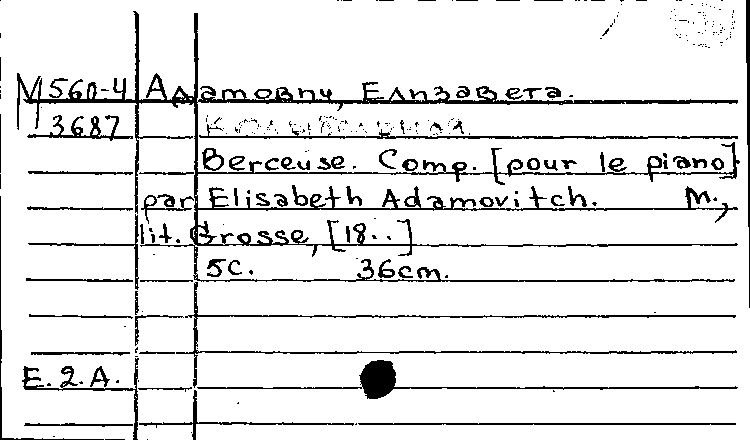 М 560-4 Адамович, Елизавета.
3687 Колыбельная.
Berceuse. Comp. [pour le piano]
par Elisabeth Adamovitch. М.,
lit. Grosse, [18..]
5с. 36cm.
Е.2.А.